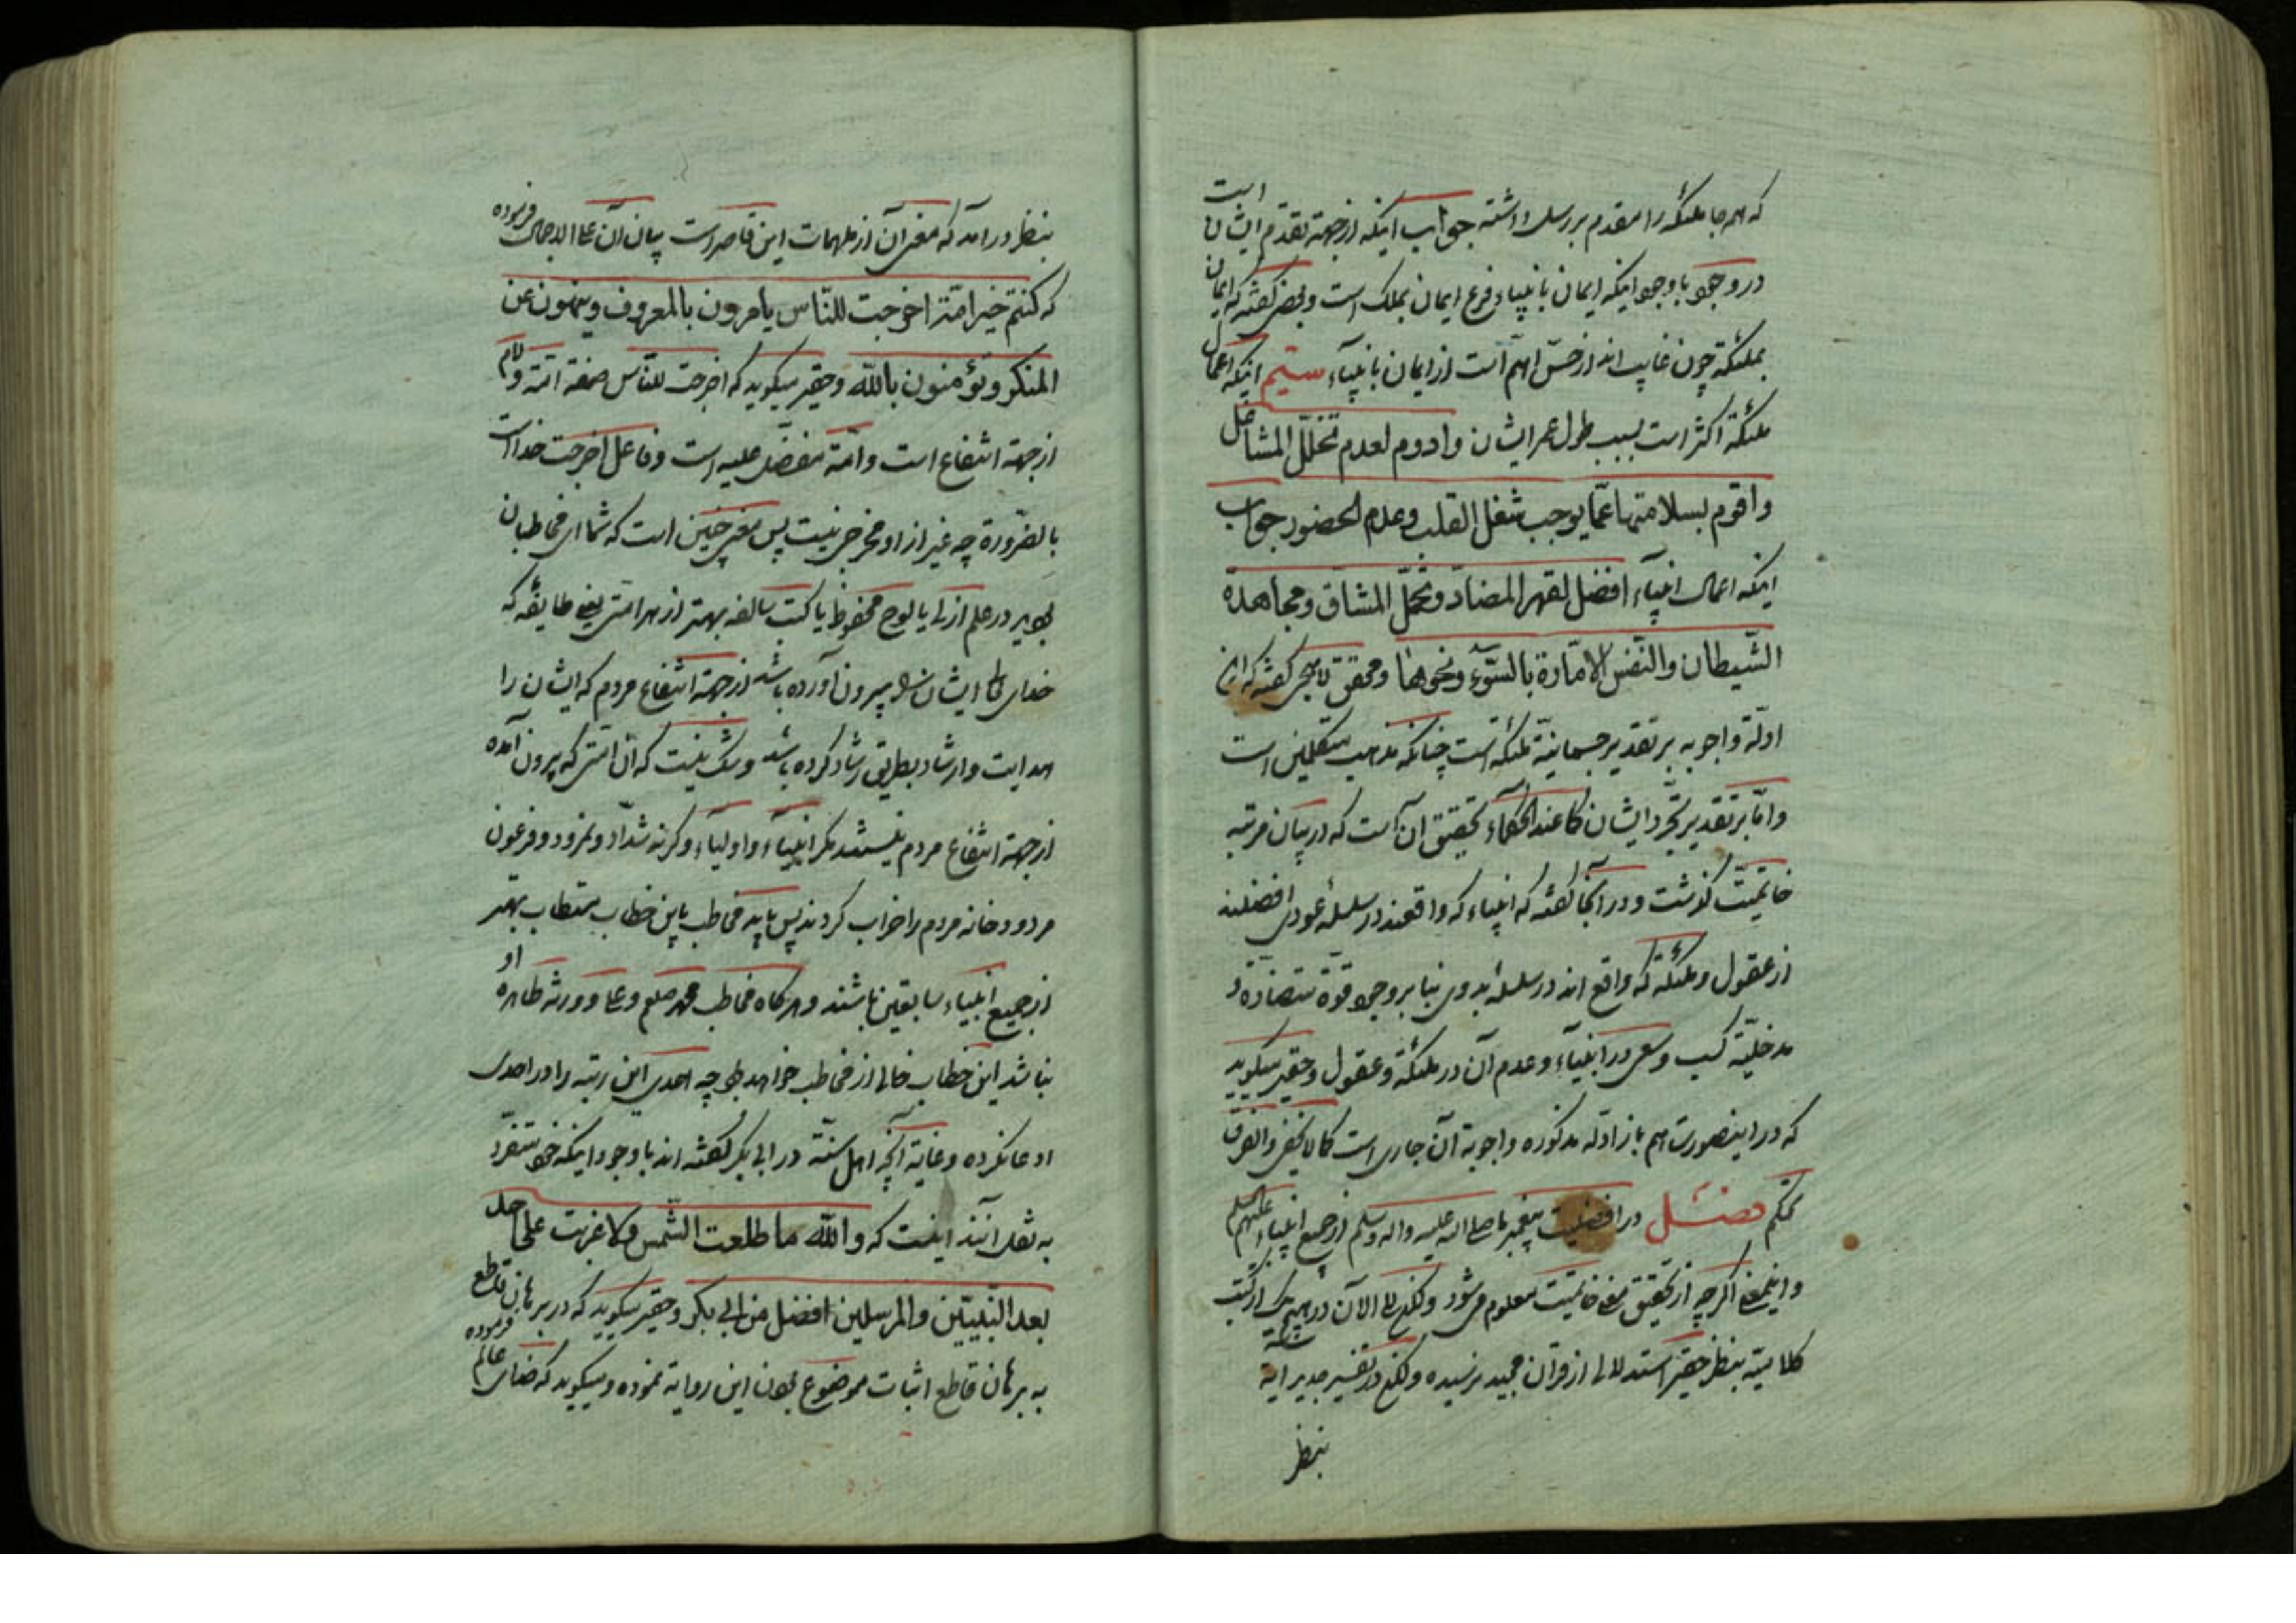 که همه جا ملئکه را مقدم بر رسل داشته جواب اینکه از جهة تقدم ایشان است
در وجود با وجود اینکه ایمان بانبیاء فرع ایمان بملک است و بعضی گفته که ایمان
بملئکة چون غایب اند از حسّ اهمّ است از ایمان بانبیآء سیّم اینکه اعمال
ملئکة اکثر است بسبب طول عمر ایشان و ادوم لعدم تخلّل المشاغل
واقوم بسلامتها عمّا یوجب شغل القلب وعدم الحضور جواب
اینکه اعمال انبیآء افضل لقهر المضادّ وتحمّل المشاقّ ومجاهدة
الشّیطان والنّفس الامّارة بالسّوء ونحوهما و محقق لاهیجی گفته که این
ادلّة و اجوبه بر تقدیر جسمانیّة ملئکه است چنانکه مذهب متکلمین است
و امّا بر تقدیر تجرّد ایشان کما عند الحکمآء تحقیق آن آنست که در بیان مرتبه
خاتمیّت گذشت و در آنجا گفته که انبیاء که واقعند در سلسلهٔ عودی افضلند
از عقول و ملئکة که واقع اند در سلسلهٔ بدوی بنا بر وجود قوّة متضادّة و
مدخلیّة کسب و سعی در انبیآء و عدم آن در ملئکة و عقول و حقیر میگوید
که در اینصورت هم باز ادله مذکوره و اجوبة آن جاری است کما لا یخفی والفرق
تحکم فصل در افضلیت پیغمبر ما صلی الله علیه واله وسلم از جمیع انبیاء علیهم السلم
و اینمعنی اگر چه از تحقیق معنی خاتمیّت معلوم میشود ولکن الی الآن در هیچیک از کتب
کلامیّه بنظر حقیر استدلالی از قرآن مجید نرسیده ولکن در تفسیر آیه
بنظر
بنظر در آمد که معنی آن از ملهمات این قاصر است بیان آن علی الاجمال فرموده
که کنتم خیر امّة اخرجت للنّاس یامرون بالمعروف وینهون عن
المنکر وتؤمنون بالله و حقیر میگوید که اخرجت للنّاس صفة امّة و لام
از جهة انتفاع است و امّة مفضّل علیه است و فاعل اخرجت خداست
بالضّرورة چه غیر از او مخرجی نیست پس معنی چنین است که شما ای مخاطبان
بودید در علم ازلی یا لوح محفوظ یا کتب سالفه بهتر از هر امّتی یعنی طایفهٔ که
خدای تعالی ایشان را بیرون آورده باشد از جهة انتفاع مردم که ایشان را
هدایت و ارشاد بطریق رشاد کرده باشد و شک نیست که آن امّتی که بیرون آمده
از جهة انتفاع مردم نیستند مگر انبیآء و اولیآء وگرنه شدّاد و نمرود و فرعون
مردود خانه مردم را خراب کردند پس باید مخاطب باین خطاب مستطاب بهتر
از جمیع انبیآء سابقین باشند و هر گاه مخاطب محمد صلعم و علی و ورثه طاهره او
نباشد این خطاب خالی از مخاطب خواهد بود چه احدی این رتبه را در احدی
ادعا نکرده و غایة آنچه اهل سنّة در ابی بکر گفته اند با وجود اینکه خود متفرّد
به نقل آنند اینست که والله ما طلعت الشّمس ولا غربت علی احد
بعد النّبیّین والمرسلین افضل من ابی بکر و حقیر میگوید که در برهان قاطع
به برهان قاطع اثبات موضوع بودن این روایة نموده و میگوید که خدای عالم فرموده